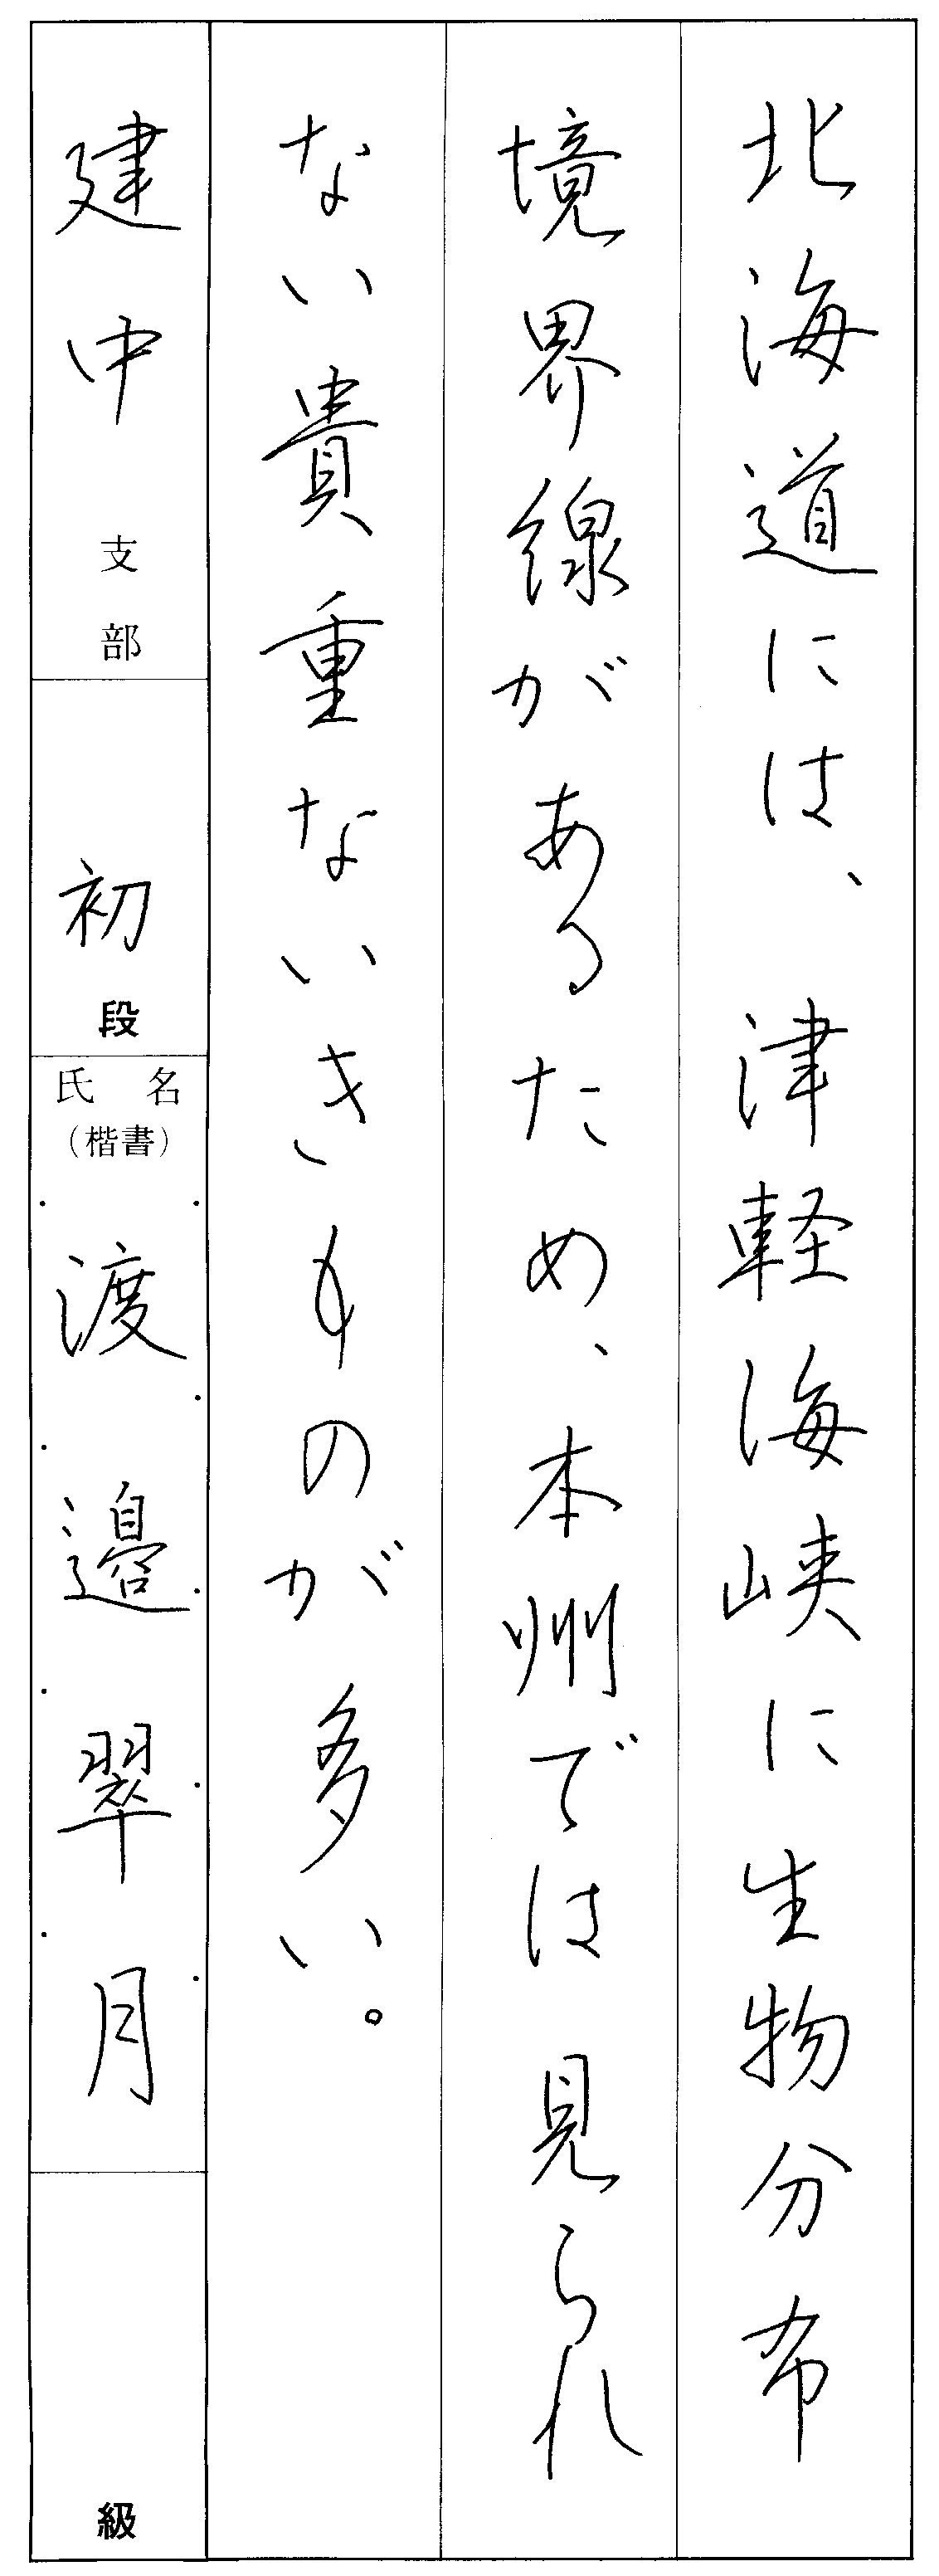 北海道には、津軽海峡に生物分布
境界線があるため、本州では見られ
ない貴重ないきものが多い。
建中支部
初段
氏名
(楷書)
渡邉翠月
級